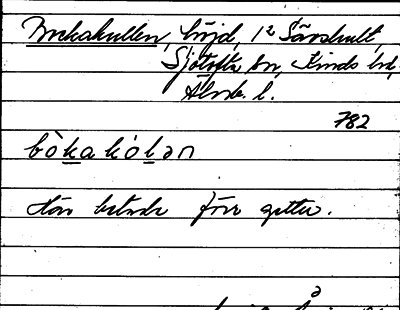 Bockakullen, höjd, 1² Sävshult,
Sjötofta sn, Kinds hd,
Älvsb. l.
782
bò̀ka kólən
Här betade förr getter.